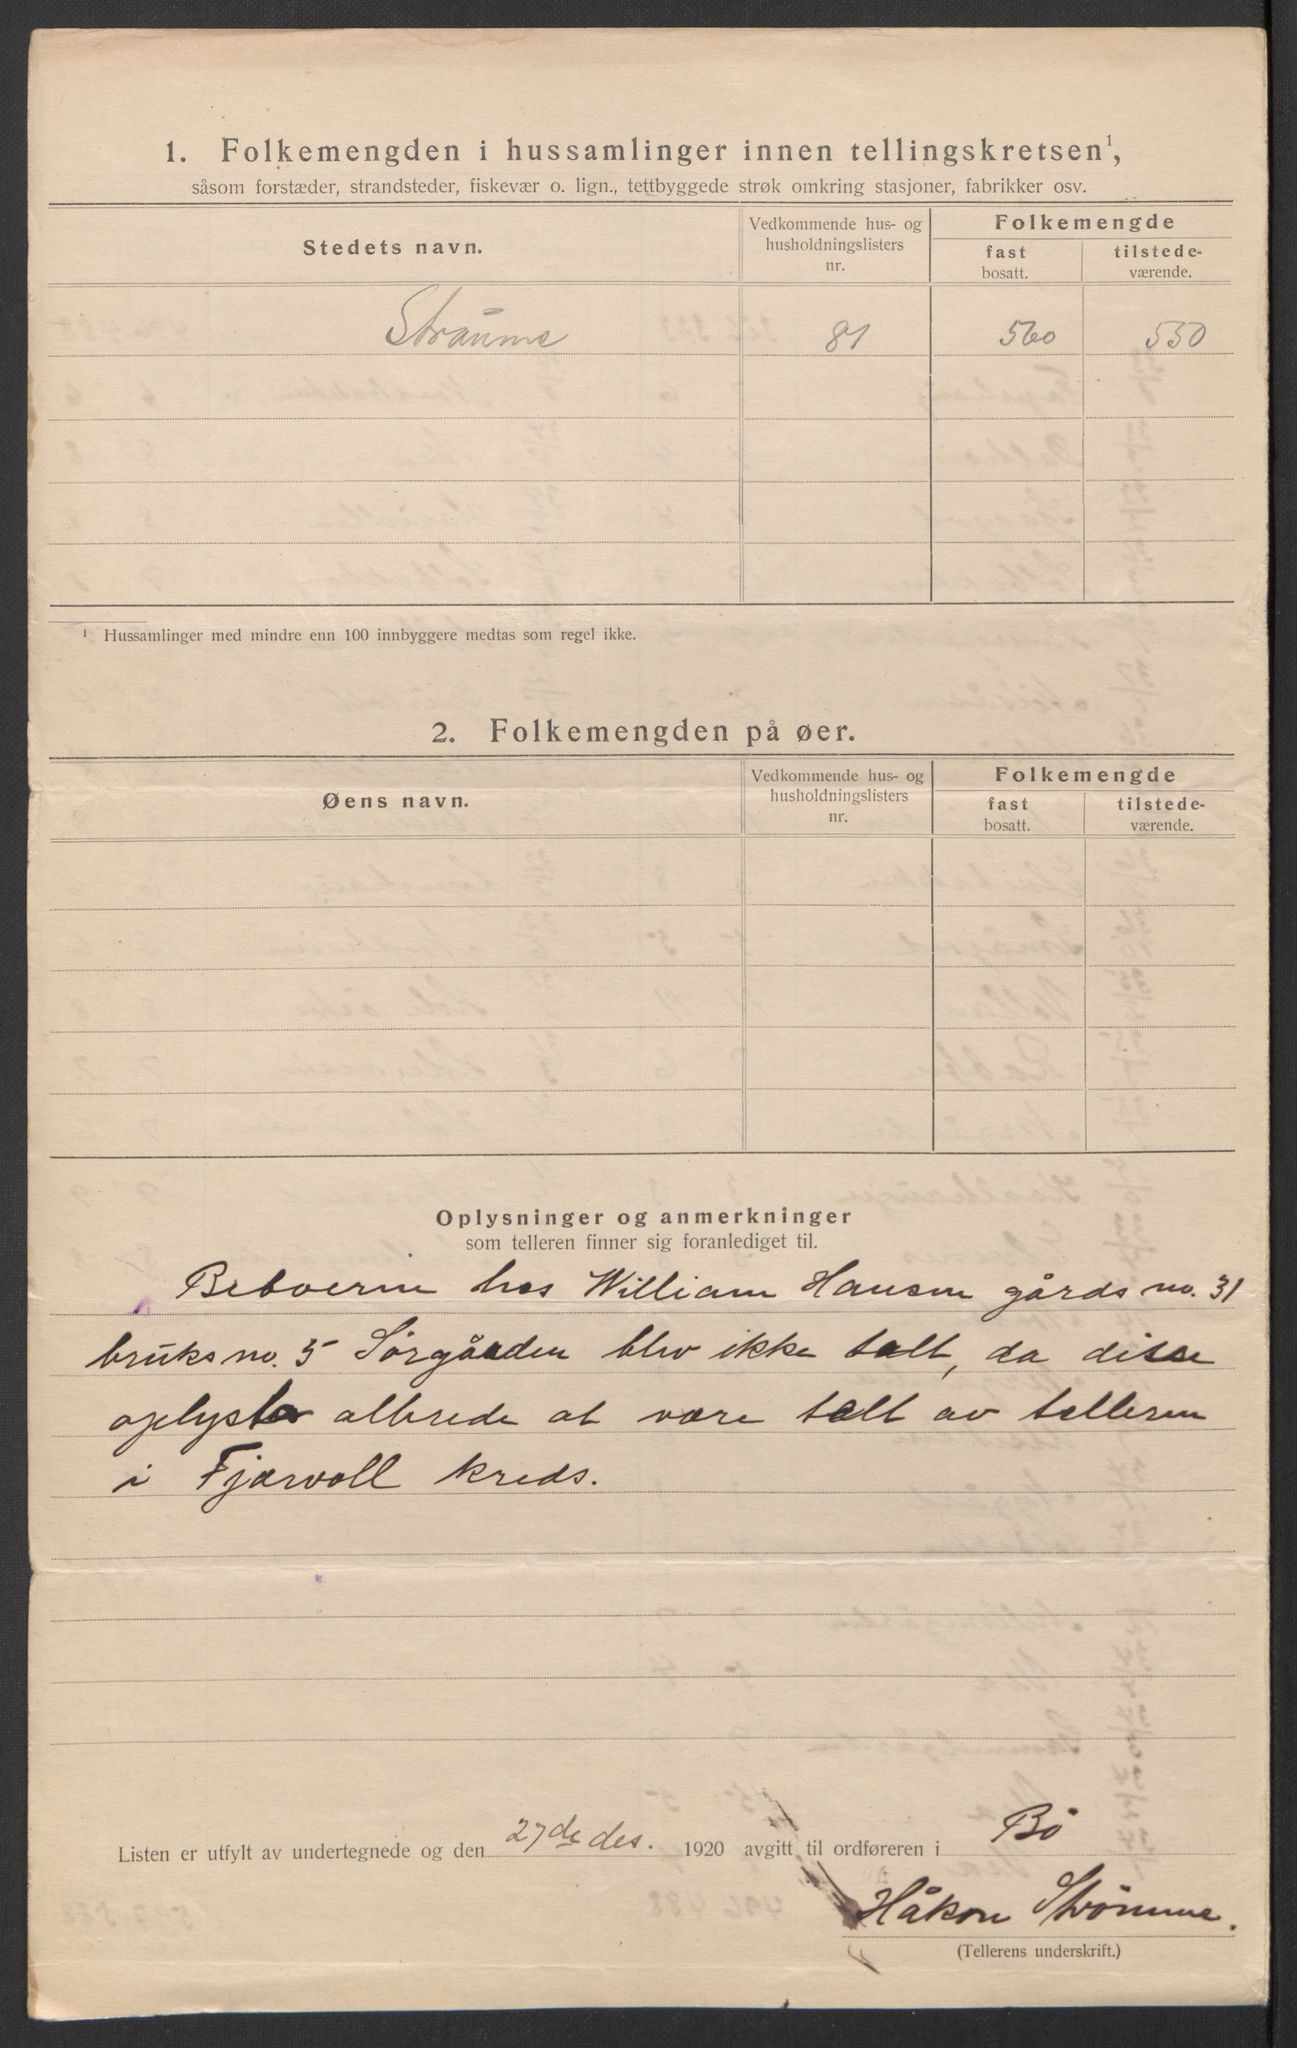 1. Folkemengden i hussamlinger innen tellingskretsen¹,
såsom forstæder, strandsteder, fiskevær o. lign., tettbyggede strøk omkring stasjoner, fabrikker osv.
Stedets navn.
Vedkommende hus- og
husholdningslisters
nr.
Folkemengde
fast
bosatt.
tilstede-
værende.
Straume 81 560 550
¹ Hussamlinger med mindre enn 100 innbyggere medtas som regel ikke.
2. Folkemengden på øer.
Øens navn.
Vedkommende hus- og
husholdningslisters
nr.
Folkemengde
fast
bosatt.
tilstede-
værende.
Oplysninger og anmerkninger
som telleren finner sig foranlediget til.
Beboerne hos William Hansen gårds no. 31
bruks no. 5 Sørgården blev ikke talt, da disse
oplyste allerede at være talt av telleren
i Fjærvoll kreds.
Listen er utfylt av undertegnede og den 27de des. 1920 avgitt til ordføreren i Bö
Håkon Strømme.
(Tellerens underskrift.)